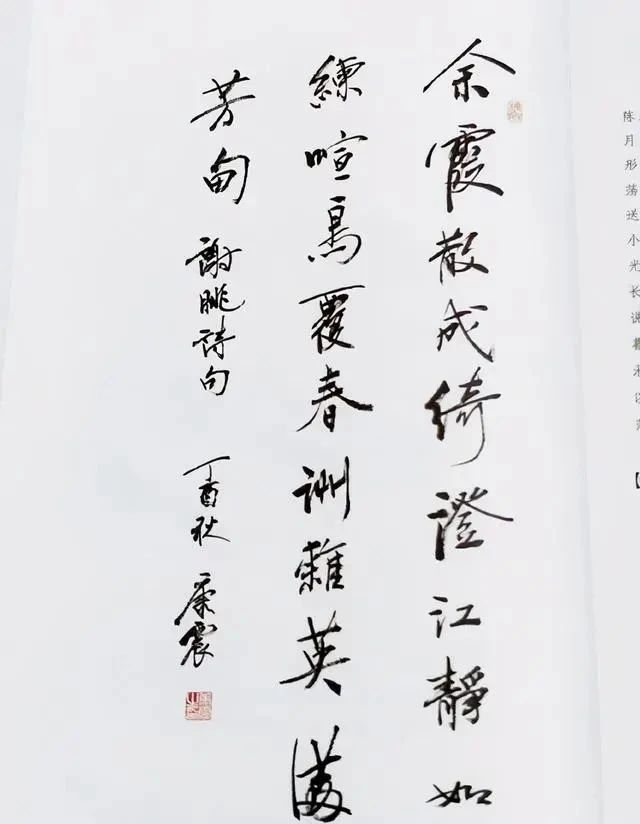 余霞散成绮澄江静如
練喧鳥覆春洲雜英满
芳甸 謝朓詩句 丁酉秋 康震
陈
月
彤
荡
送
小
光
长
说